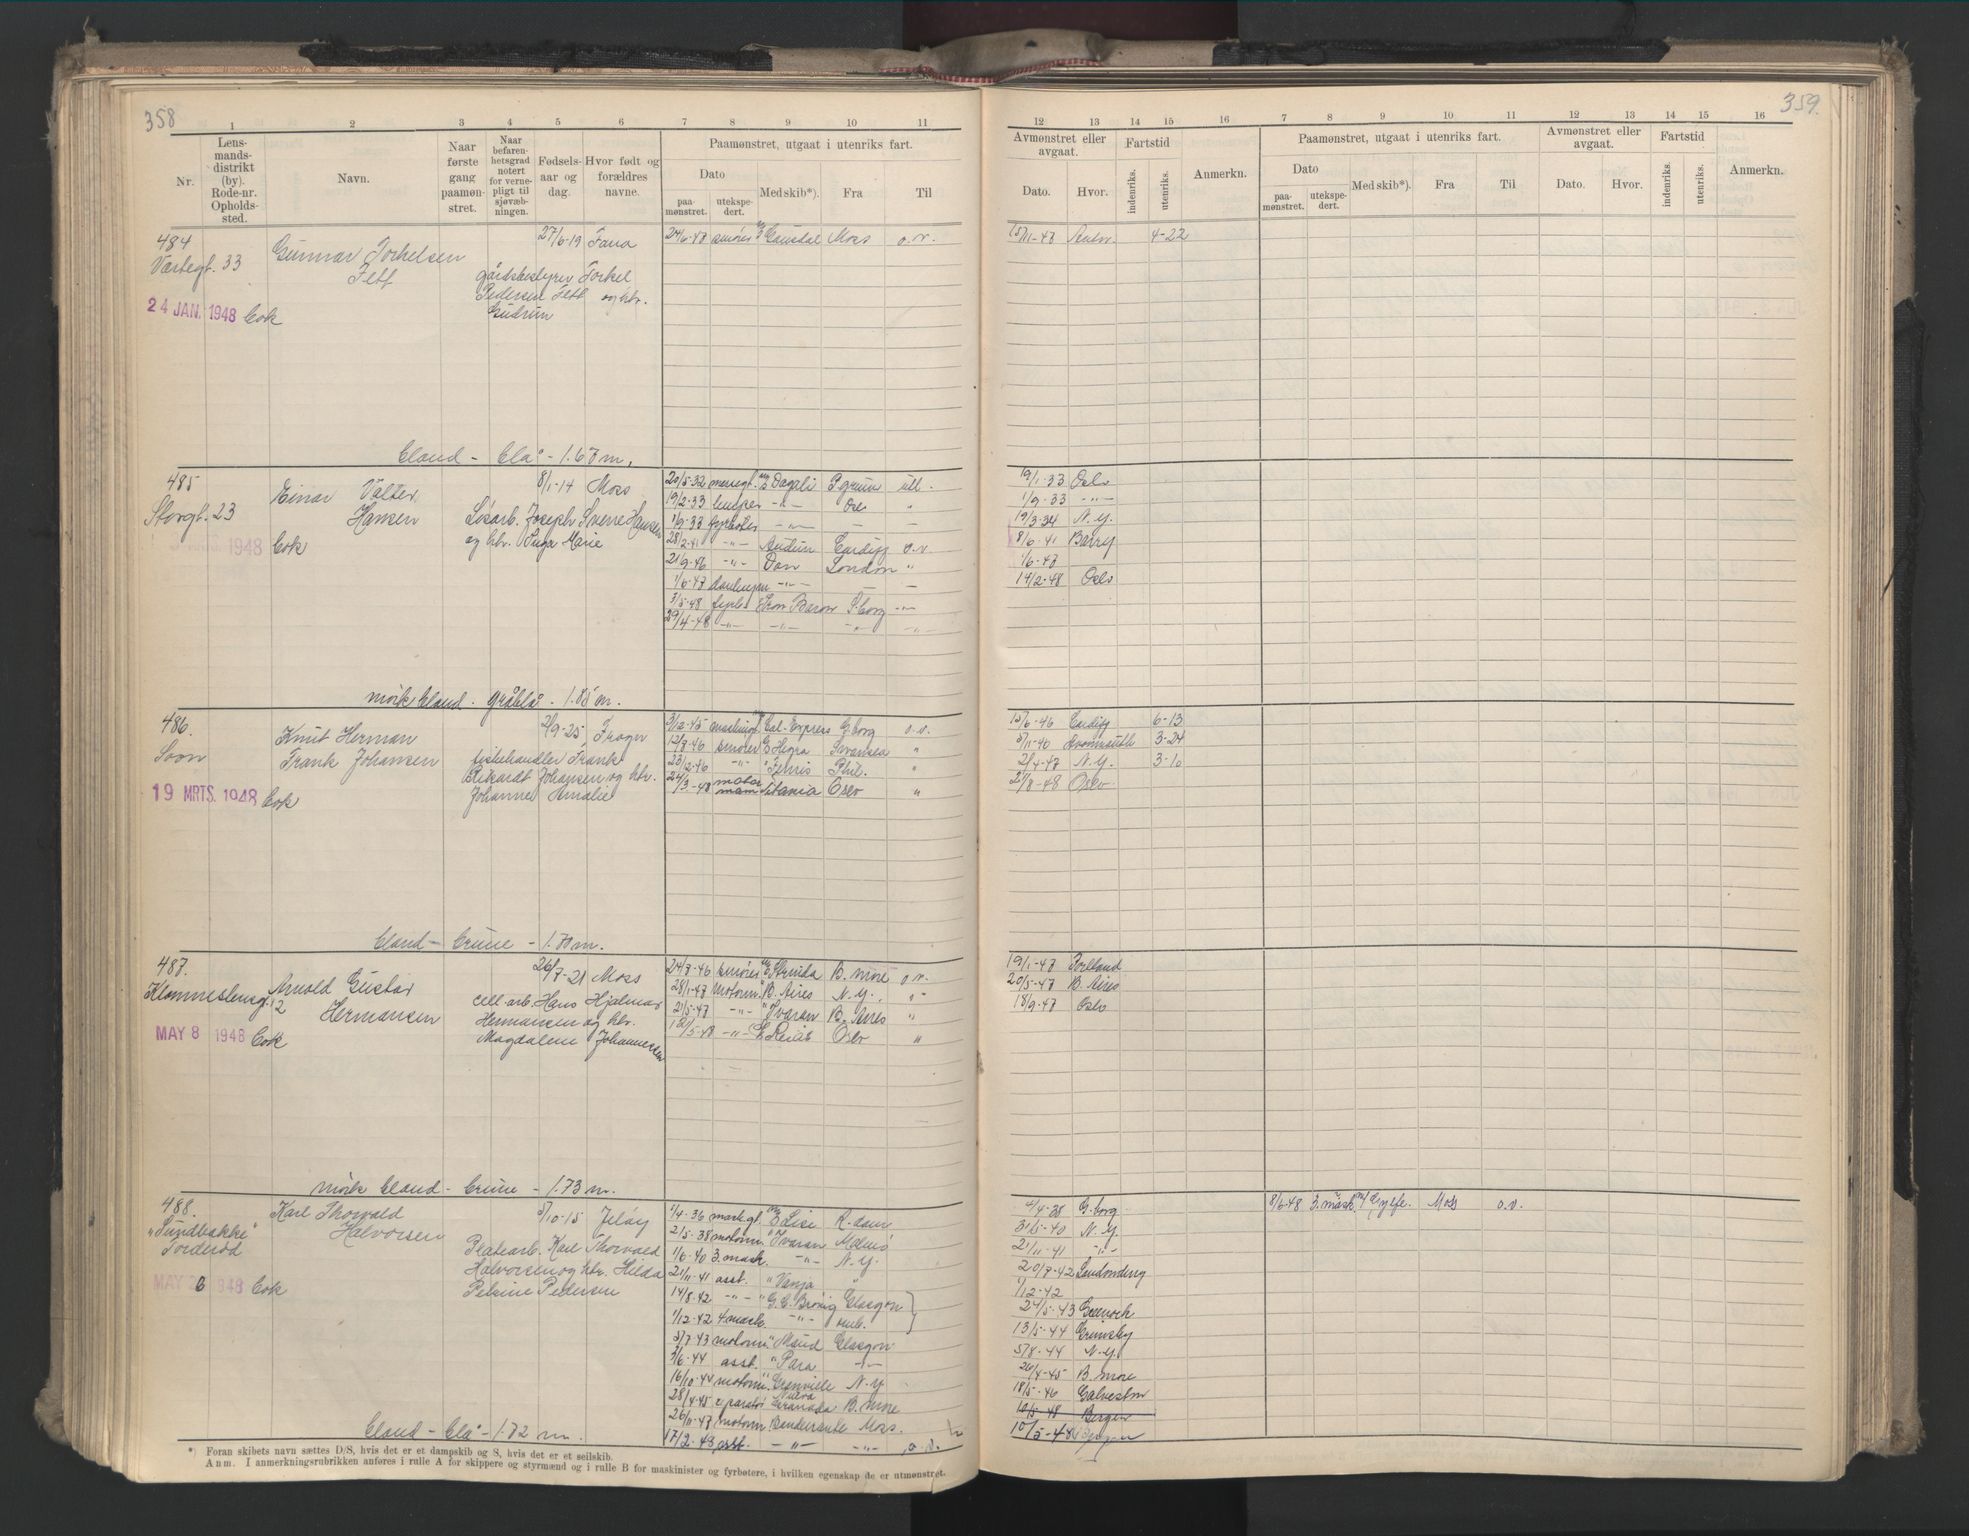 358
1 2 3 4 5 6 7 8 9 10 11
Nr.
Lensmandsdistrikt (by). Rode-nr. Opholdssted.
Navn.
Naar første gang paamønstret.
Naar befarenhetsgrad notert for vernepligt til sjøvæbningen.
Fødselsaar og dag.
Hvor født og forældres navne.
Paamønstret, utgaat i utenriks fart.
Dato
paamønstret.
utekspedert.
Med skib*).
Fra
Til
484
Gunnar Torkelsen
Fett
24 JAN. 1948
27/6-19 Fana
gårdsbestyrer Torkel
Pedersen Fett og htr.
Gudrun
24/6-47 smører Gausdal Moss o.v.
bland - blå - 1.67 m.
485
Storgt. 23
Einar Valter
Hansen
1948
8/1-14 Moss
Løsarb. Joseph Sverre Hansen
og htr. Inga Marie
20/5-32 messegt. Dagali
19/2-33 lemper -"- Oslo "
1/9-33 fyrbøter -"- - -
28/2-41 -"- Audun Cardiff o.v.
21/9-46 -"- Dan London "
1/6-47 -"- -
3/5-48 fyrb. Iron Baron S.borg -"-
29/4-48 -"- -"- -"- -"-
mørk bland - gråblå - 1.85 m.
486
Son
Knut Herman
Frank Johansen
19 MRTS. 1948
2/9-25 Frogn
fiskehandler Frank
Rikardt Johansen og htr.
Johanne Amalie
9/12-45 Cal. Express G.borg o.v.
12/7-46 smører Hegra Swansea "
23/12-46 -"- Fernis Phil. "
24/3-48 motormann Titania Oslo "
bland - brune - 1.70 m.
487.
Arnold Gustav
Hermansen
MAY 8 1948
26/7-21 Moss
cell.arb. Hans Hjalmar
Hermansen og htr.
Magdalene Johannessen
24/7-46 smører Strinda B.more o.v.
28/1-47 Motorm. B. Aires N.Y. "
21/5-47 -"- Ivaran B. Aires "
12/5-48 -"- Oslo "
mørk bland - brune - 1.73 m.
488.
"Sundbakke"
Torderød
Karl Thorvald
Halvorsen
MAY 26 1948
5/10-15 Jeløy
Platearb. Karl Thorvald
Halvorsen og htr. Hilda
Petrine Pedersen
1/4-36 mask.gt. Lise R-dam
21/5-38 motorm. Ivaran Malmø
1/6-40 3. mask. -"- N.Y.
21/11-41 asst. Vanja "
14/8-42 -"- G.C. Brøvig Glasgow
1/12-42 4 mask. -"- omb.
5/7-43 motorm. Maud Glasgow
3/6-44 asst. Para -"-
16/10-44 motorm. Granville N.Y.
28/4-45 reparatør Nueva Granada B.more
26/11-47 motorm Bandeirante Moss.
17/2-48 asst. -"- -"- o.v.
bland - blå - 1.82 m.
*) Foran skibets navn sættes D/S, hvis det er et dampskib og S, hvis det er et seilskib.
Anm. I anmerkningsrubrikken anføres i rulle A for skippere og styrmænd og i rulle B for maskinister og fyrbøtere, i hvilken egenskap de er utmønstret.
359.
12 13 14 15 16 7 8 9 10 11 12 13 14 15 16
Avmønstret eller avgaat.
Dato.
Hvor.
Fartstid
indenriks.
utenriks.
Anmerkn.
Paamønstret, utgaat i utenriks fart.
Dato
paamønstret.
utekspedert.
Med skib*).
Fra
Til
Avmønstret eller avgaat.
Dato.
Hvor.
Fartstid
indenriks.
utenriks.
Anmerkn.
15/11-48 Antw. 4-22
19/1-33 Oslo
1/9-33 -"-
19/3-34 N.Y.
8/6-41 Barry
1/6-47
14/2-48 Oslo
15/6-46 Cardiff 6-13
5/11-40 Avonmouth 3-24
2/4-47 N.Y. 3-10
27/8-48 Oslo
19/1-47 Portland
20/5-47 B. Aires
18/9-47 Oslo
4/4-38 G.borg
31/5-40 N.Y.
21/11-41 -"-
20/7-42
1/12-42
24/5-43 Greenock
13/5-44 Grimsby
5/8-44 N.Y.
20/4-45 B.more
18/5-46 Galveston
10/5-48 Bergen
10/5-48 Bergen
8/6-48 3. mask Gylfe. Moss o.v.